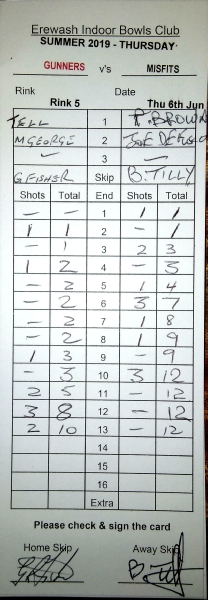 Erewash Indoor Bowls Club
SUMMER 2019 - THURSDAY
GUNNERS v's MISFITS
Rink Date
Rink 5 Thu 6th Jun
TELL 1 P. BROWN
M GEORGE 2 JOE
- 3 -
G FISHER Skip B. TILLY
Shots Total End Shots Total
- - 1 1 1
1 1 2 - 1
- 1 3 2 3
1 2 4 - 3
- 2 5 1 4
- 2 6 3 7
- 2 7 1 8
- 2 8 1 9
1 3 9 - 9
- 3 10 3 12
2 5 11 - 12
3 8 12 - 12
2 10 13 - 12
14
15
16
Extra
Please check & sign the card
Home Skip Away Skip